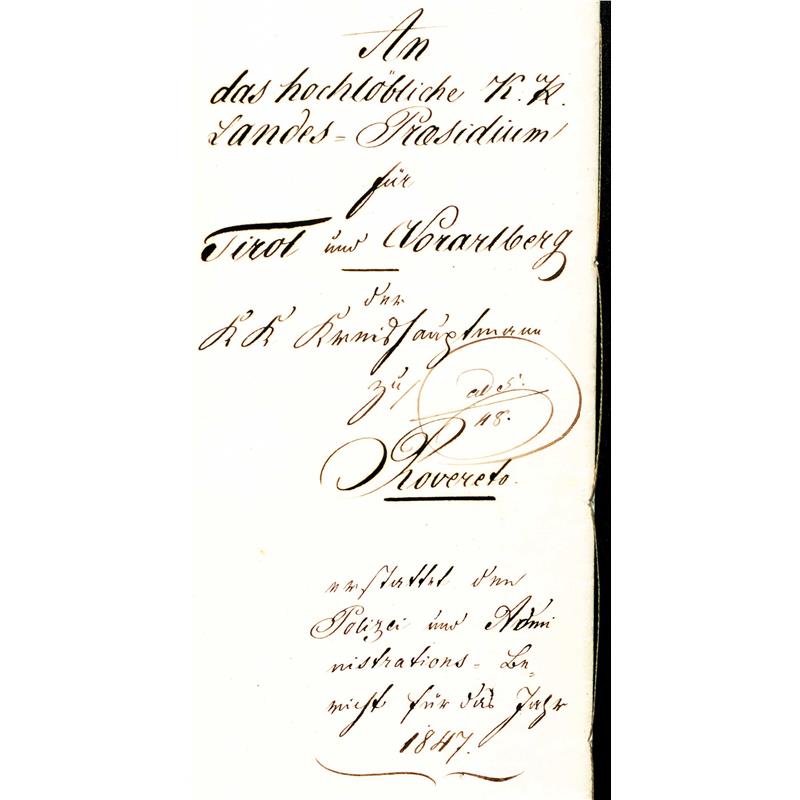 An
das hochlöbliche K. K.
Landes-Præsidium
für
Tirol und Vorarlberg
der
K K Kreishauptmann
zu
ad 5.
48.
Rovereto.
erstattet den
Polizei und Admi
nistrations-Be=
richt für das Jahr
1847.